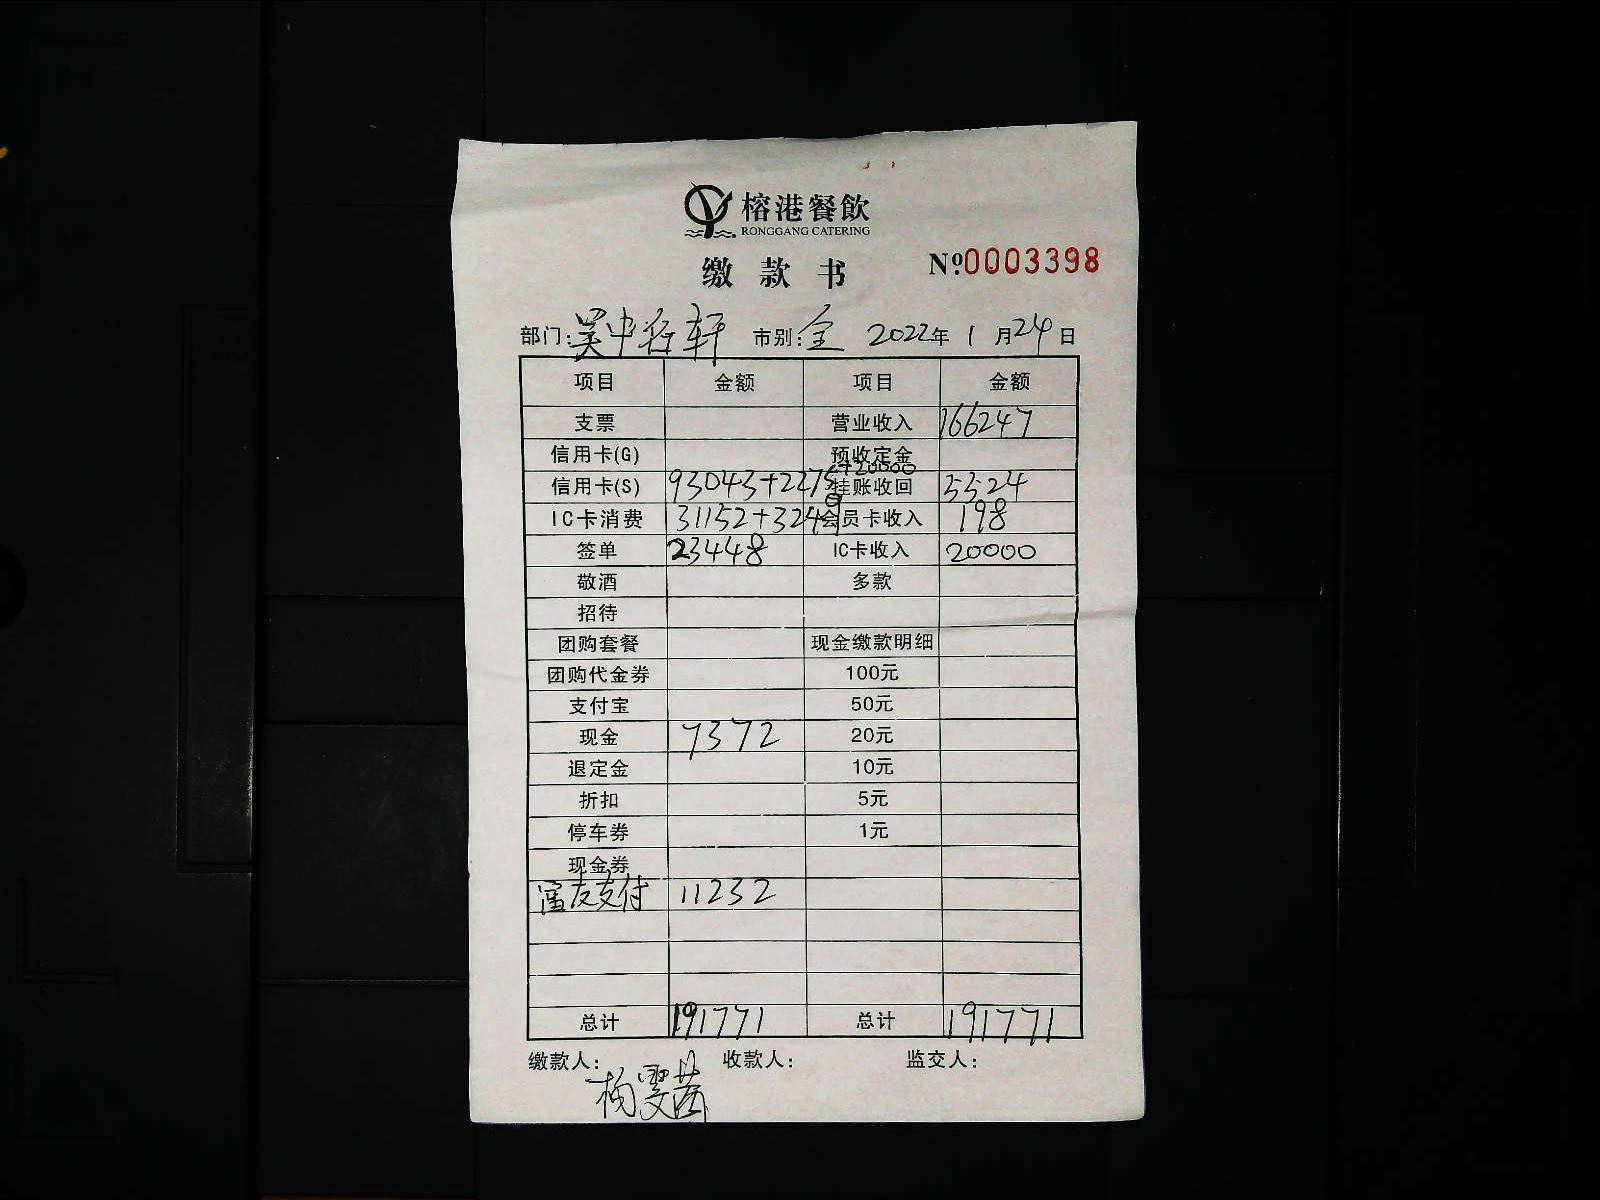 榕港餐飲
RONGGANG CATERING
缴款书 №0003398
部门: 吴中 轩 市别: 全 2022年 1月24日
项目 金额 项目 金额
支票 营业收入 166247
信用卡(G) 预收定金
信用卡(S) 93043+2275+20000 挂账收回 5524
IC卡消费 31152+3249 会员卡收入 198
签单 23448 IC卡收入 20000
敬酒 多款
招待
团购套餐 现金缴款明细
团购代金券 100元
支付宝 50元
现金 7372 20元
退定金 10元
折扣 5元
停车券 1元
现金券
富友支付 11232
总计 191771 总计 191771
缴款人: 杨雯茜 收款人: 监交人: